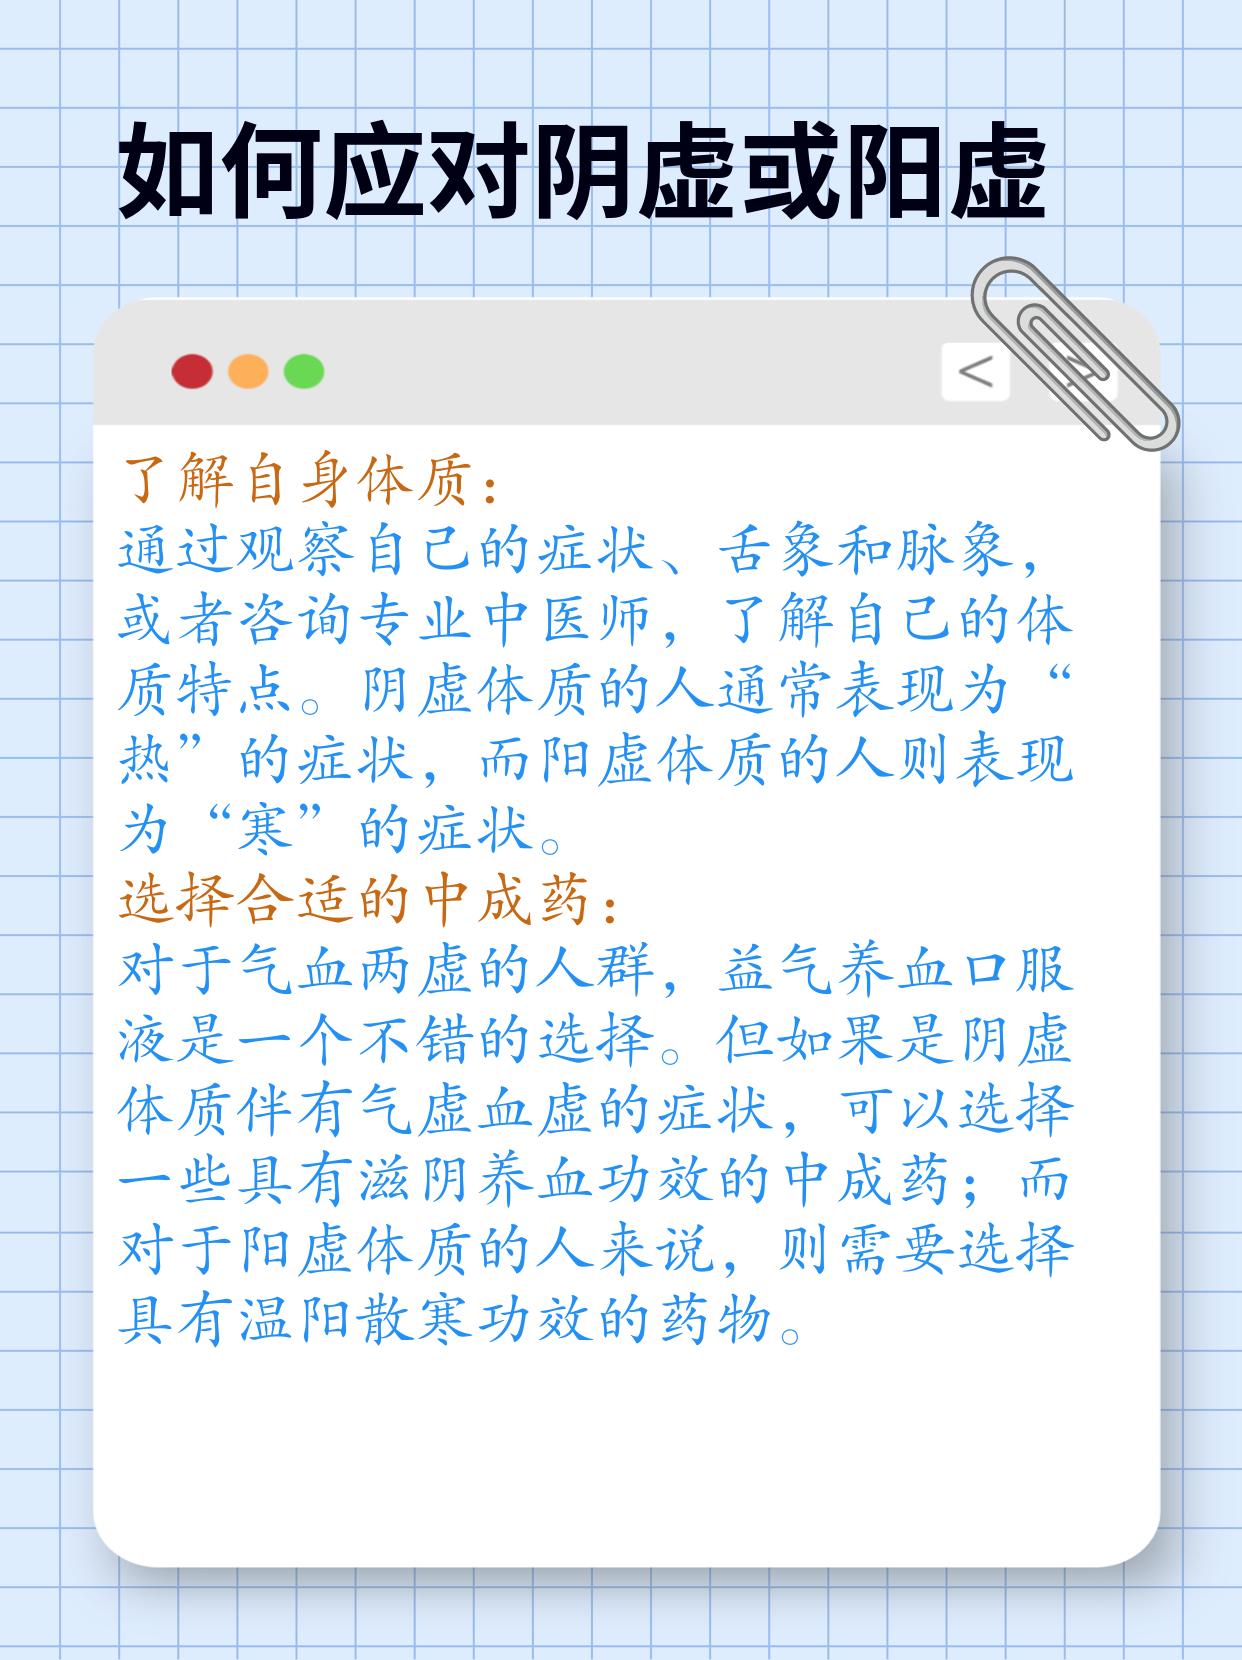 如何应对阴虚或阳虚
<
了解自身体质：
通过观察自己的症状、舌象和脉象，
或者咨询专业中医师，了解自己的体
质特点。阴虚体质的人通常表现为“
热”的症状，而阳虚体质的人则表现
为“寒”的症状。
选择合适的中成药：
对于气血两虚的人群，益气养血口服
液是一个不错的选择。但如果是阴虚
体质伴有气虚血虚的症状，可以选择
一些具有滋阴养血功效的中成药；而
对于阳虚体质的人来说，则需要选择
具有温阳散寒功效的药物。